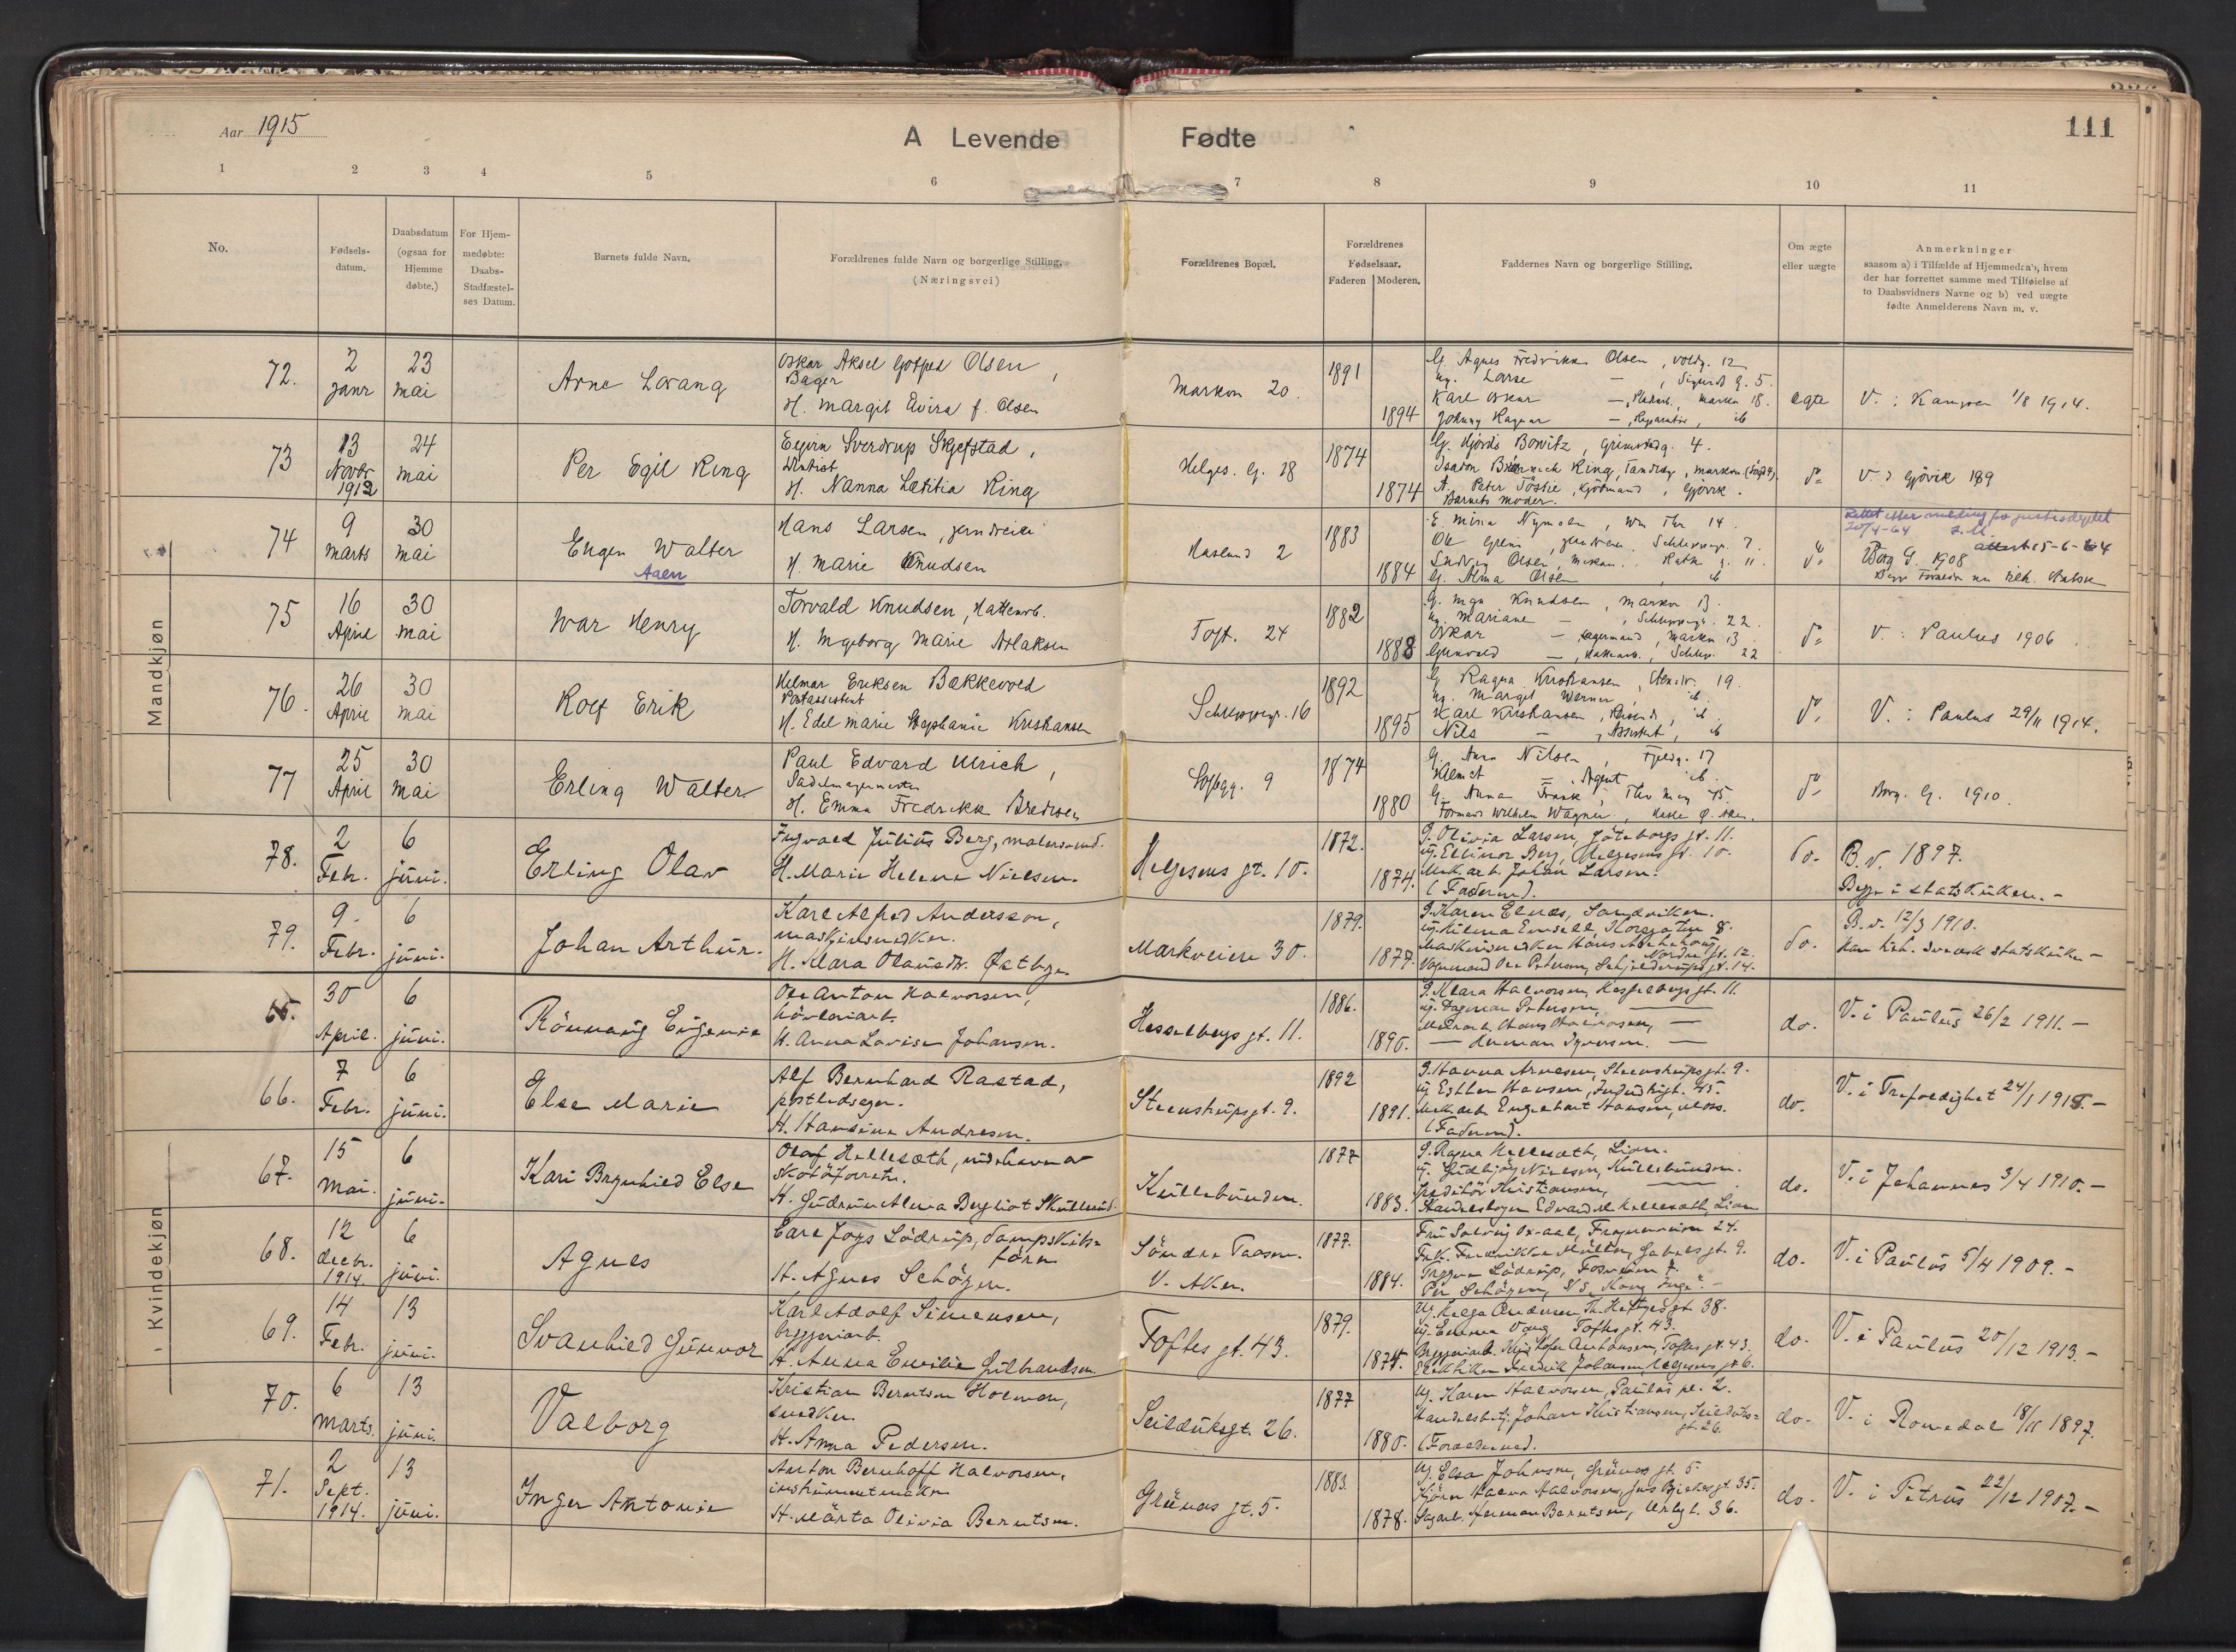 Aar 1915
A Levende Fødte
111
1 2 3 4 5 6 7 8 9 10 11
No.
Fødsels-
datum.
Daabsdatum
(ogsaa for
Hjemme
døbte.)
For Hjem-
medøbte:
Daabs-
Stadfæstel-
ses Datum.
Barnets fulde Navn.
Forældrenes fulde Navn og borgerlige Stilling.
(Næringsvei)
Forældrenes Bopæl.
Forældrenes
Fødselsaar.
Faderen Moderen.
Faddernes Navn og borgerlige Stilling.
Om ægte
eller uægte
Anmerkninger
saasom a) i Tilfælde af Hjemmedaab, hvem
der har forrettet samme med Tilføielse af
to Daabsvidners Navne og b) ved uægte
fødte Anmelderens Navn m. v.
Mandkjøn
72.
2
Janr
23
mai
Arne Lorang
Oskar Aksel Olsen,
Bager
H. Margit Elvira f. Olsen
Markvn 20.
1891
1894
G. Agnes Fredrikke Olsen, Voldg. 12
Karl Oskar
ægte
V. : Kampen 1/8 1914.
73
13
Novbr
1912
24
mai
Per Egil Ring
Eyvin Sverdrup Skjefstad,
Dentist
H. Nanna Lætitia Ring
Helges. g. 28
1874
1874
G. Hjørdis Bowitz, Grimstadg. 4.
A. Peter Töstie, Kjöbmand, Gjøvik.
Barnets moder.
do
V. i Gjøvik
74
9
marts
30
mai
Eugen Walter
Aaen
Hans Larsen, jerndreier
H. Marie Knudsen
Hasland 2
1883
1884
G. Alma Olsen
do
Rettet efter melding fra justisdeptet
20/4-64
attest 15-6-64
Borg G. 1908
75
16
April
30
mai
Ivar Henry
Torvald Knudsen, Hattearb.
H. Ingeborg Marie Aslaksen
Toft. 24
1882
1888
G. Inga Knudsen, Markvn 13.
Ug. Mariane - , Schleppegr. 22.
Oskar - , Lagermand, Markvn 13.
do
V. : Paulus 1906
76.
26
April
30
mai
Rolf Erik
Hilmar Eriksen Bakkevold
Postassistent
H. Edel Marie Stephanie Kristiansen
Schleppegr. 16
1892
1895
G. Ragna Kristiansen, 19.
Ug. Margit Werner, ib
Karl Kristiansen, ib
Nils - , Assistent, ib
do
V. : Paulus 29/11 1914.
77
25
April
30
mai
Erling Walter
Paul Edvard Ulrich,
Sadelmagermester
H. Emma Fredrikke Bredesen
Sofbgg. 9
1874
1880
G. Anna Nilsen, Fjeldg. 17
G. Anna Frank, Thv Mey 45.
Formand Wilhelm Wagner,
do
Borg. G. 1910.
78.
2
Febr.
6
júni.
Erling Olav
Ingvald Júliús Berg, malersvend.
H. Marie Helene Nielsen.
Helgesens gt. 10.
1872.
1874.
G. Olivia Larsen, Göteborgs gt. 11.
ug. Ellinor Berg, Helgesens gt. 10.
Mek. arb. Johan Larsen.
(Faderen).
do.
B. v. 1897.
Begge i statskirken. -
79.
9.
Febr.
6
júni.
Johan Arthúr.
Karl Alfred Andersson,
maskinsnedker.
H. Klara Olaúsdtr. Østbye
Markveien 30.
1879.
1877.
G. Karen Elnæs, Sandviken.
Nordre gt. 12.
Vognmand Ole Petersen, Schjelderups gt. 14.
do.
B. v. 12/3 1910.
Han tilh. svensk statskirke -
Kvindekjøn
65.
30
April.
6
júni.
Rönnaúg Eugenie
Ole Anton Halvorsen,
hövleriarb.
H. Anna Lovise Johansen.
Hesselbergs gt. 11.
1886.
1890.
G. Klara Halvorsen, Hesselbergs gt. 11.
ug. Dagmar Petersen, -
Mek. arb. Hans Halvorsen, -
- Herman Syversen. -
do.
V. i Paúlús 26/2 1911. -
66.
7
Febr.
6
júni.
Else Marie
Alf Bernhard Rastad,
postledsager.
H. Hansine Andresen.
Steenstrúps gt. 9.
1892
1891.
G. Hanna Arnesen, Steenstrúps gt. 9.
ug Esther Hansen, Indústrigt. 45.
Mek. arb. Engelhart Hansen, Moss.
(Faderen).
do.
V. i Trefoldighet 24/1 1915. -
67.
15
Mai.
6
júni.
Kari Brynhild Else
Olaf Hellesæth, indehaver av
skotöiforretn.
H. Gúdrún Alma Bergliot Skúllerúd.
Kúllebúnden.
1877
1883.
G. Ragna Hellesæth, Lian.
ug. Gúdbjörg Nielsen, Kúllebúnden.
Speditör Kristiansen, -
Handelsborger Edvard M. Hellesæth, Lian
do.
V. i Johannes 3/4 1910. -
68.
12
decbr.
1914.
6
júni.
Agnes
Carl Joys Lödrúp, dampskibs-
förer
H. Agnes Schögen.
Söndre Taasen.
V. Aker.
1877.
1884.
Frú Solveig Ox-aal, Frognerveien 24.
Frk. Fredrikke Müller, Gabels gt. 9.
Trygve Lödrúp, Fosveien 7.
Per Schögen, S/S. "Kong Inge". -
do.
V. i Paúlús 5/4 1909. -
69.
14
Febr.
13
júni.
Svanhild Gúnvor
Karl Adolf Simensen,
bryggeriarb.
H. Anna Emilie Gúlbrandsen.
Toftes gt. 43.
1879.
1874.
Ug. Helga Andersen Th. Heftyes gt. 38.
ug. Emma Vang Toftes gt. 43.
Bryggeriarb. Kristofer Antonsen, Toftes gt. 43.
Elektriker Fredrik Johansen, Helgesens gt. 6.
do.
V. i Paúlús 20/12 1913. -
70.
6
Marts.
13
júni.
Valborg
Kristian Berntsen Holmen,
snedker.
H. Anna Pedersen.
Seildúksgt. 26.
1877
1880.
Ug. Karen Halvorsen, Paúlús pl. 2.
Handelsbetj. Johan Kristiansen, Seildúks-
gt. 26.
(Forældrene).
do.
V. i Romedal 18/11 1897.
71.
2
Sept.
1914.
13
júni.
Inger Antonie
Anton Bernhoff Halvorsen,
instrúmentmaker
H. Märta Olivia Berntsen.
Grüners gt. 5.
1883.
1878.
Ug. Elsa Johnsen, Grüners gt. 5.
Sagarb. Herman Berntsen, Urbgt. 36.
do.
V. i Petrús 22/12 1907. -